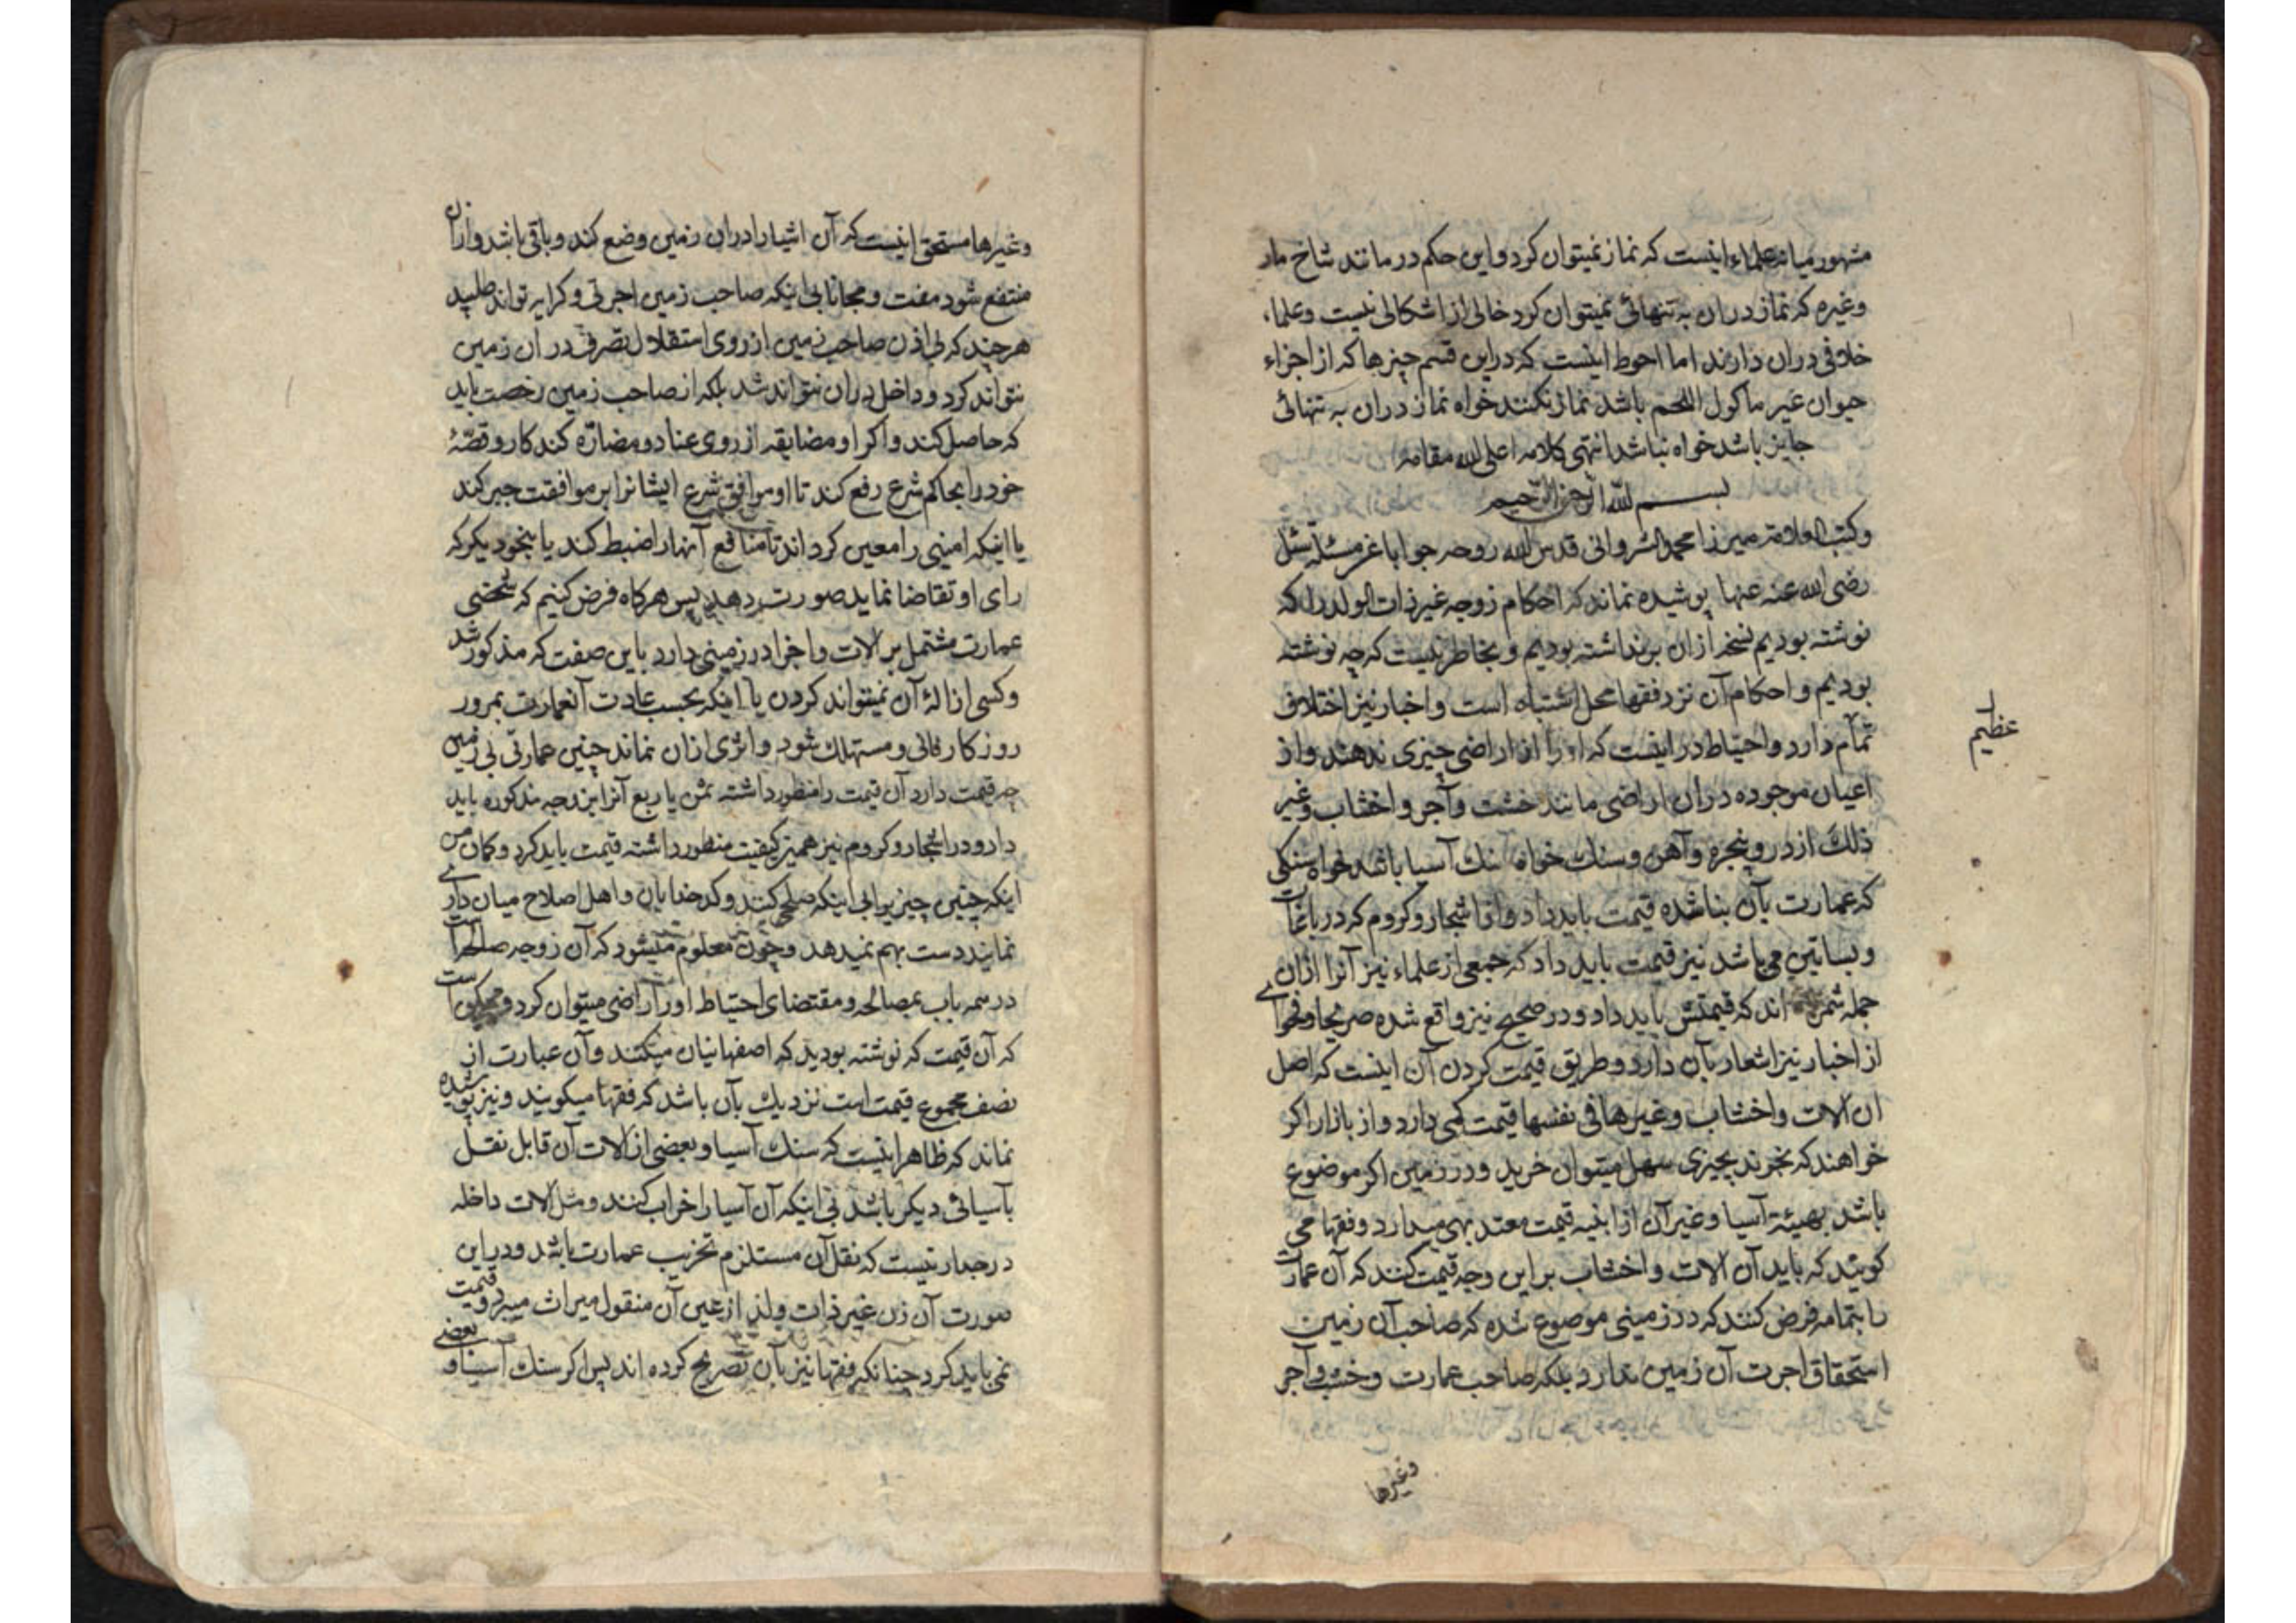 مشهور میانه علماء اینست که نماز نمیتوان کرد و این حکم در مانند شاخ مار
و غیره که نماز دران به تنهائی نمیتوان کرد خالی از اشکالی نیست و علماء
خلافی دران دارند اما احوط اینست که دراین قسم چیزها که از اجزاء
حیوان غیر ماکول اللحم باشد نماز نکنند خواه نماز دران به تنهائی
جایز باشد خواه نباشد انتهی کلامه اعلی الله مقامه
بسم الله الرحمن الرحیم
و کتب العلامة میرزا محمد الشروانی قدس الله روحه جوابا عن مسئلة سئل
رضی الله عنه عنها پوشیده نماند که احکام زوجه غیر ذات الولد را که
نوشته بودیم نسخه ازان برنداشته بودیم و بخاطر نیست که چه نوشته
بودیم و احکام آن نزد فقها محل اشتباه است و اخبار نیز اختلاف
تمام دارد و احتیاط در اینست که او را از اراضی چیزی ندهند و از
اعیان موجوده دران اراضی مانند خشت و آجر و اخشاب و غیر
ذلک از در و پنجره و آهن و سنک خواه سنک آسیا باشد خواه سنکی
که عمارت بآن بنا شده قیمت باید داد و از اشجار و کروم که در باغات
و بساتین می باشد نیز قیمت باید داد که جمعی از علماء نیز آنرا ازان
جمله شمرده اند که قیمتش باید داد و در صحیح نیز واقع شده صریحا و فحوای
از اخبار نیز اشعار بآن دارد و طریق قیمت کردن آن اینست که اصل
ان الات و اخشاب و غیرها فی نفسها قیمت کمی دارد و از بازار اکر
خواهند که بخرند بچیزی سهل میتوان خرید و در زمین اکر موضوع
باشد بهیئة آسیا و غیر آن از ابنیه قیمت معتد بهی میدارد و فقها می
کویند که باید آن الات و اخشاب بر این وجه قیمت کنند که آن عمارت
را بتمامه فرض کنند که در زمینی موضوع شده که صاحب آن زمین
استحقاق اجرت آن زمین ندارد بلکه صاحب عمارت و خشب و آجر
وغیرها
عظیم
و غیرها مستحق اینست که آن اشیا را دران زمین وضع کند و باقی باشد و ازان
منتفع شود مفت و مجانا بی اینکه صاحب زمین اجرتی و کرایه تواند طلبید
هرچند که بی اذن صاحب زمین از روی استقلال تصرفی در ان زمین
نتواند کرد و داخل دران نتواند شد بلکه از صاحب زمین رخصت باید
که حاصل کند و اکر او مضایقه از روی عناد و مضاره کند کار و قصّهٔ
خود را بحاکم شرع رفع کند تا او موافق شرع ایشانرا بر موافقت جبر کند
یا اینکه امینی را معین کرداند تا منافع آنها را ضبط کند یا بنحو دیکر که
رای او تقاضا نماید صورت دهد پس هرکاه فرض کنیم که شخصی
عمارت مشتمل بر الات و اجزا در زمینی دارد باین صفت که مذکور شد
و کسی ازالهٔ آن نمیتواند کردن یا اینکه بحسب عادت آنعمارت بمرور
روزکار فانی و مستهلک شود و اثری ازان نماند چنین عمارتی بی زمین
چه قیمت دارد آن قیمت را منظور داشته ثمن یا ربع آنرا بزوجه مذکوره باید
داد و در اشجار و کروم نیز همین کیفیت منظور داشته قیمت باید کرد و کمان من
اینکه چنین چیز بوابی اینکه صلحی کنند و کدخدایان و اهل اصلاح میان داری
نمایند دست بهم نمیدهد و چون معلوم میشود که آن زوجه صالحه است
در همه باب بمصالحه و مقتضای احتیاط او را راضی میتوان کرد و است
که آن قیمت که نوشته بودید که اصفهانیان میکنند و آن عبارت از
نصف مجموع قیمت است نزدیک بآن باشد که فقها میکویند و نیز پوشیده
نماند که ظاهر اینست که سنک آسیا و بعضی از الات آن قابل نقل
بآسیائی دیکر باشد بی اینکه آن آسیا را خراب کنند و مثل الات داخله
در جدار نیست که نقل آن مستلزم تخریب عمارت باشد و دراین
صورت آن زن غیر ذات ولد از عین آن منقول میراث میبرد و قیمت
نمی باید کرد چنانکه فقها نیز بآن تصریح کرده اند پس اکر سنک آسیا و بعضی